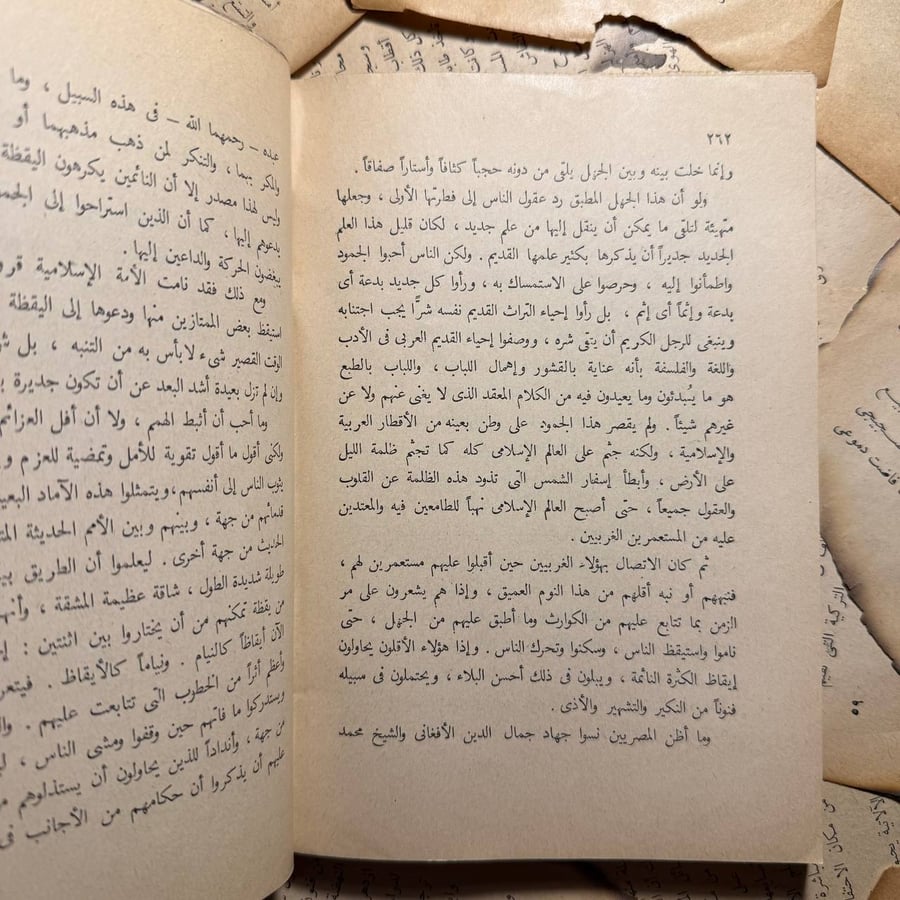 ٢٦٢
وإنما خلت بينه وبين الجهل يلقى من دونه حجباً كثافاً وأستاراً صفاقاً .
ولو أن هذا الجهل المطبق رد عقول الناس إلى فطرتها الأولى ، وجعلها
متهيئة لتلقى ما يمكن أن ينقل إليها من علم جديد ، لكان قليل هذا العلم
الجديد جديراً أن يذكرها بكثير علمها القديم . ولكن الناس أحبوا الجمود
واطمأنوا إليه ، وحرصوا على الاستمساك به ، ورأوا كل جديد بدعة أى
بدعة وإثماً أى إثم ، بل رأوا إحياء التراث القديم نفسه شرًّا يجب اجتنابه
وينبغى للرجل الكريم أن يتقى شره ، ووصفوا إحياء القديم العربى فى الأدب
واللغة والفلسفة بأنه عناية بالقشور وإهمال اللباب ، واللباب بالطبع
هو ما يُبدئون وما يعيدون فيه من الكلام المعقد الذى لا يغنى عنهم ولا عن
غيرهم شيئاً . ولم يقصر هذا الجمود على وطن بعينه من الأقطار العربية
والإسلامية ، ولكنه جثم على العالم الإسلامى كله كما تجثم ظلمة الليل
على الأرض ، وأبطأ إسفار الشمس التى تذود هذه الظلمة عن القلوب
والعقول جميعاً ، حتى أصبح العالم الإسلامى نهباً للطامعين فيه والمعتدين
عليه من المستعمرين الغربيين .
ثم كان الاتصال بهؤلاء الغربيين حين أقبلوا عليهم مستعمرين لهم ،
فنبههم أو نبه أقلهم من هذا النوم العميق ، وإذا هم يشعرون على مر
الزمن بما تتابع عليهم من الكوارث وما أطبق عليهم من الجهل ، حتى
ناموا واستيقظ الناس ، وسكنوا وتحرك الناس . وإذا هؤلاء الأقلون يحاولون
إيقاظ الكثرة النائمة ، ويبلون فى ذلك أحسن البلاء ، ويحتملون فى سبيله
فنوناً من النكير والتشهير والأذى .
وما أظن المصريين نسوا جهاد جمال الدين الأفغانى والشيخ محمد
عبده – رحمهما الله – فى هذه السبيل ، وما
والمكر بهما ، والتنكر لمن ذهب مذهبهما أو
وليس لهذا مصدر إلا أن النائمين يكرهون اليقظة
يدعوهم إليها ، كما أن الذين استراحوا إلى
يبغضون الحركة والداعين إليها .
ومع ذلك فقد نامت الأمة الإسلامية
استيقظ بعض الممتازين منها ودعوها إلى اليقظة
الوقت القصير شىء لا بأس به من التنبه ، بل
وإن لم تزل بعيدة أشد البعد عن أن تكون جديرة
وما أحب أن أثبط الهمم ، ولا أن أفل العزائم
ولكنى أقول ما أقول تقوية للأمل وتمضية للعزم و
يثوب الناس إلى أنفسهم، ويتمثلوا هذه الآماد
من جهة ، وبينهم وبين الأمم الحديثة
الحديث من جهة أخرى . ليعلموا أن الطريق
طويلة شديدة الطول ، شاقة عظيمة المشقة ،
من يقظة تمكنهم من أن يختاروا بين اثنتين :
الآن أيقاظاً كالنيام . ونياماً كالأيقاظ .
وأعظم أثراً من الخطوب التى تتابعت عليهم .
ويستدركوا ما فاتهم حين وقفوا ومشى الناس ،
من جهة ، وأنداداً للذين يحاولون أن يستذلوهم
عليهم أن يذكروا أن حكامهم من الأجانب فى
٥٩